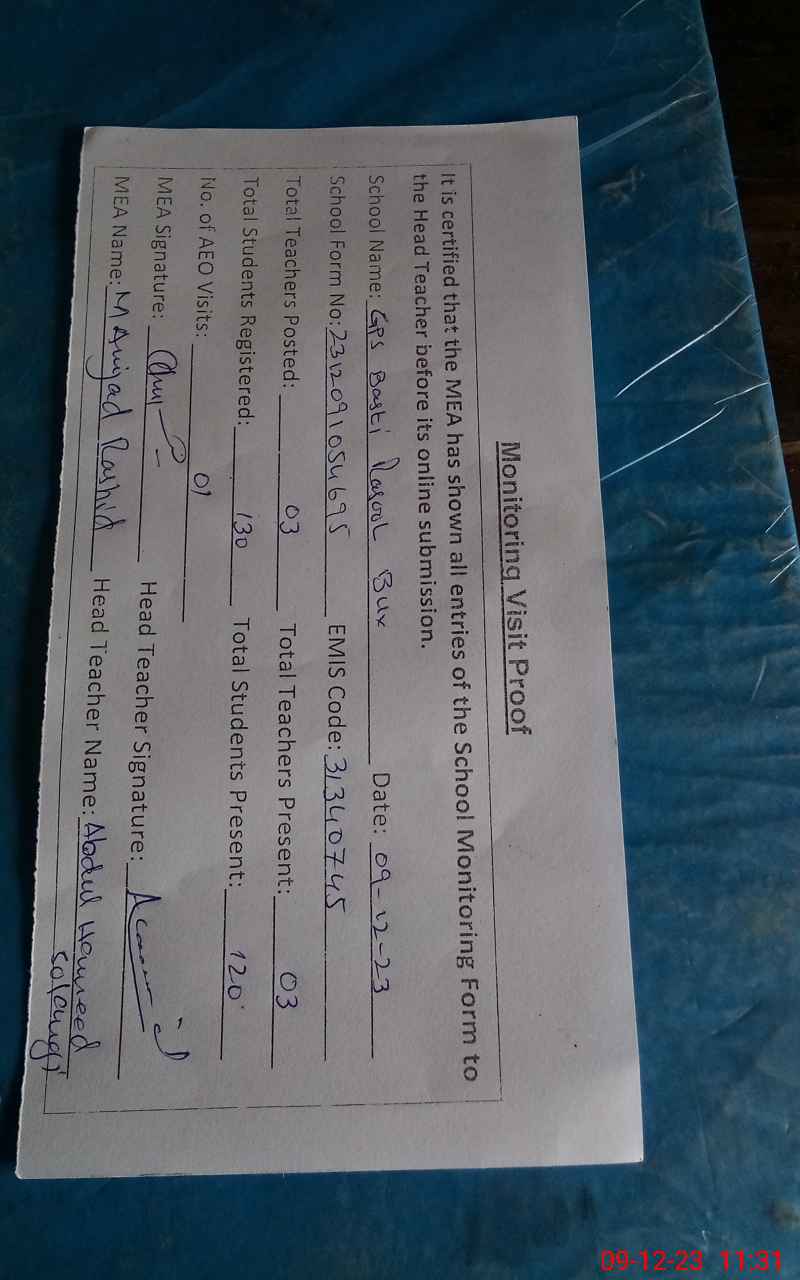 Monitoring Visit Proof
It is certified that the MEA has shown all entries of the School Monitoring Form to
the Head Teacher before its online submission.
School Name: GPS Basti Rasool Bux Date: 09-12-23
School Form No: 2312091054695 EMIS Code: 31340745
Total Teachers Posted: 03 Total Teachers Present: 03
Total Students Registered: 130 Total Students Present: 120
No. of AEO Visits: 01
MEA Signature: Head Teacher Signature:
MEA Name: M Amjad Rashid Head Teacher Name: Abdul Hameed
Solangi
09-12-23 11:31